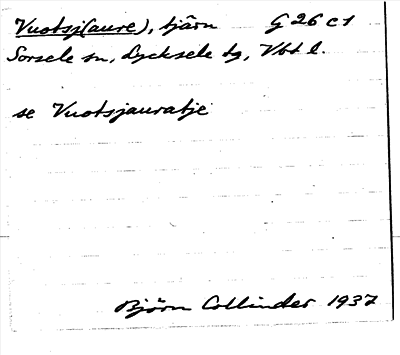 Vuotsj(aure), tjärn G 26 c 1
Sorsele sn, Lycksele tg, Vbt l.
se Vuotsjauratje
Björn Collinder 1937